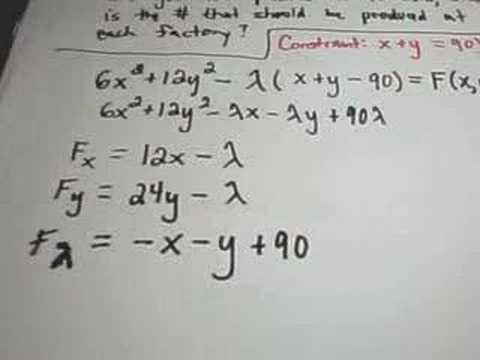 is the # that should be produced at
each factory?
Constraint: x+y = 90
6x²+12y² - λ(x+y-90) = F(x,
6x²+12y² - λx - λy + 90λ
Fx = 12x - λ
Fy = 24y - λ
Fλ = -x - y + 90